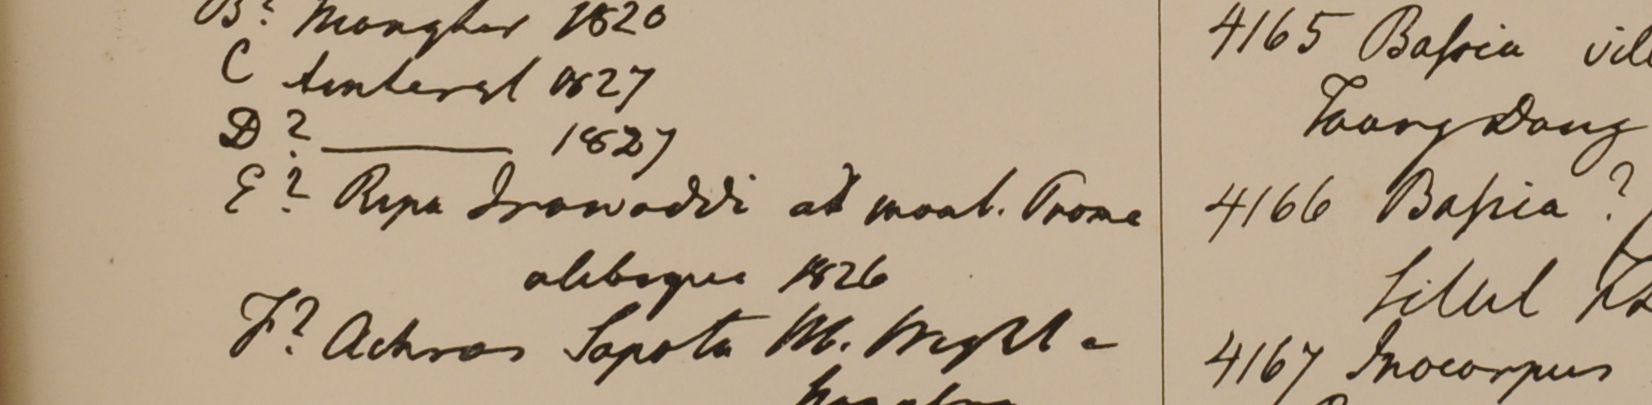 B? Monghir 1820
C Amherst 1827
D? ——— 1827
E? Ripa Irawaddi ad mont. Prome
alibsque 1826
F? Achras Sapota M. Wight
4165 Bassia vill
Taong Dong
4166 Bassia ?
Sillet
4167 Inocarpus